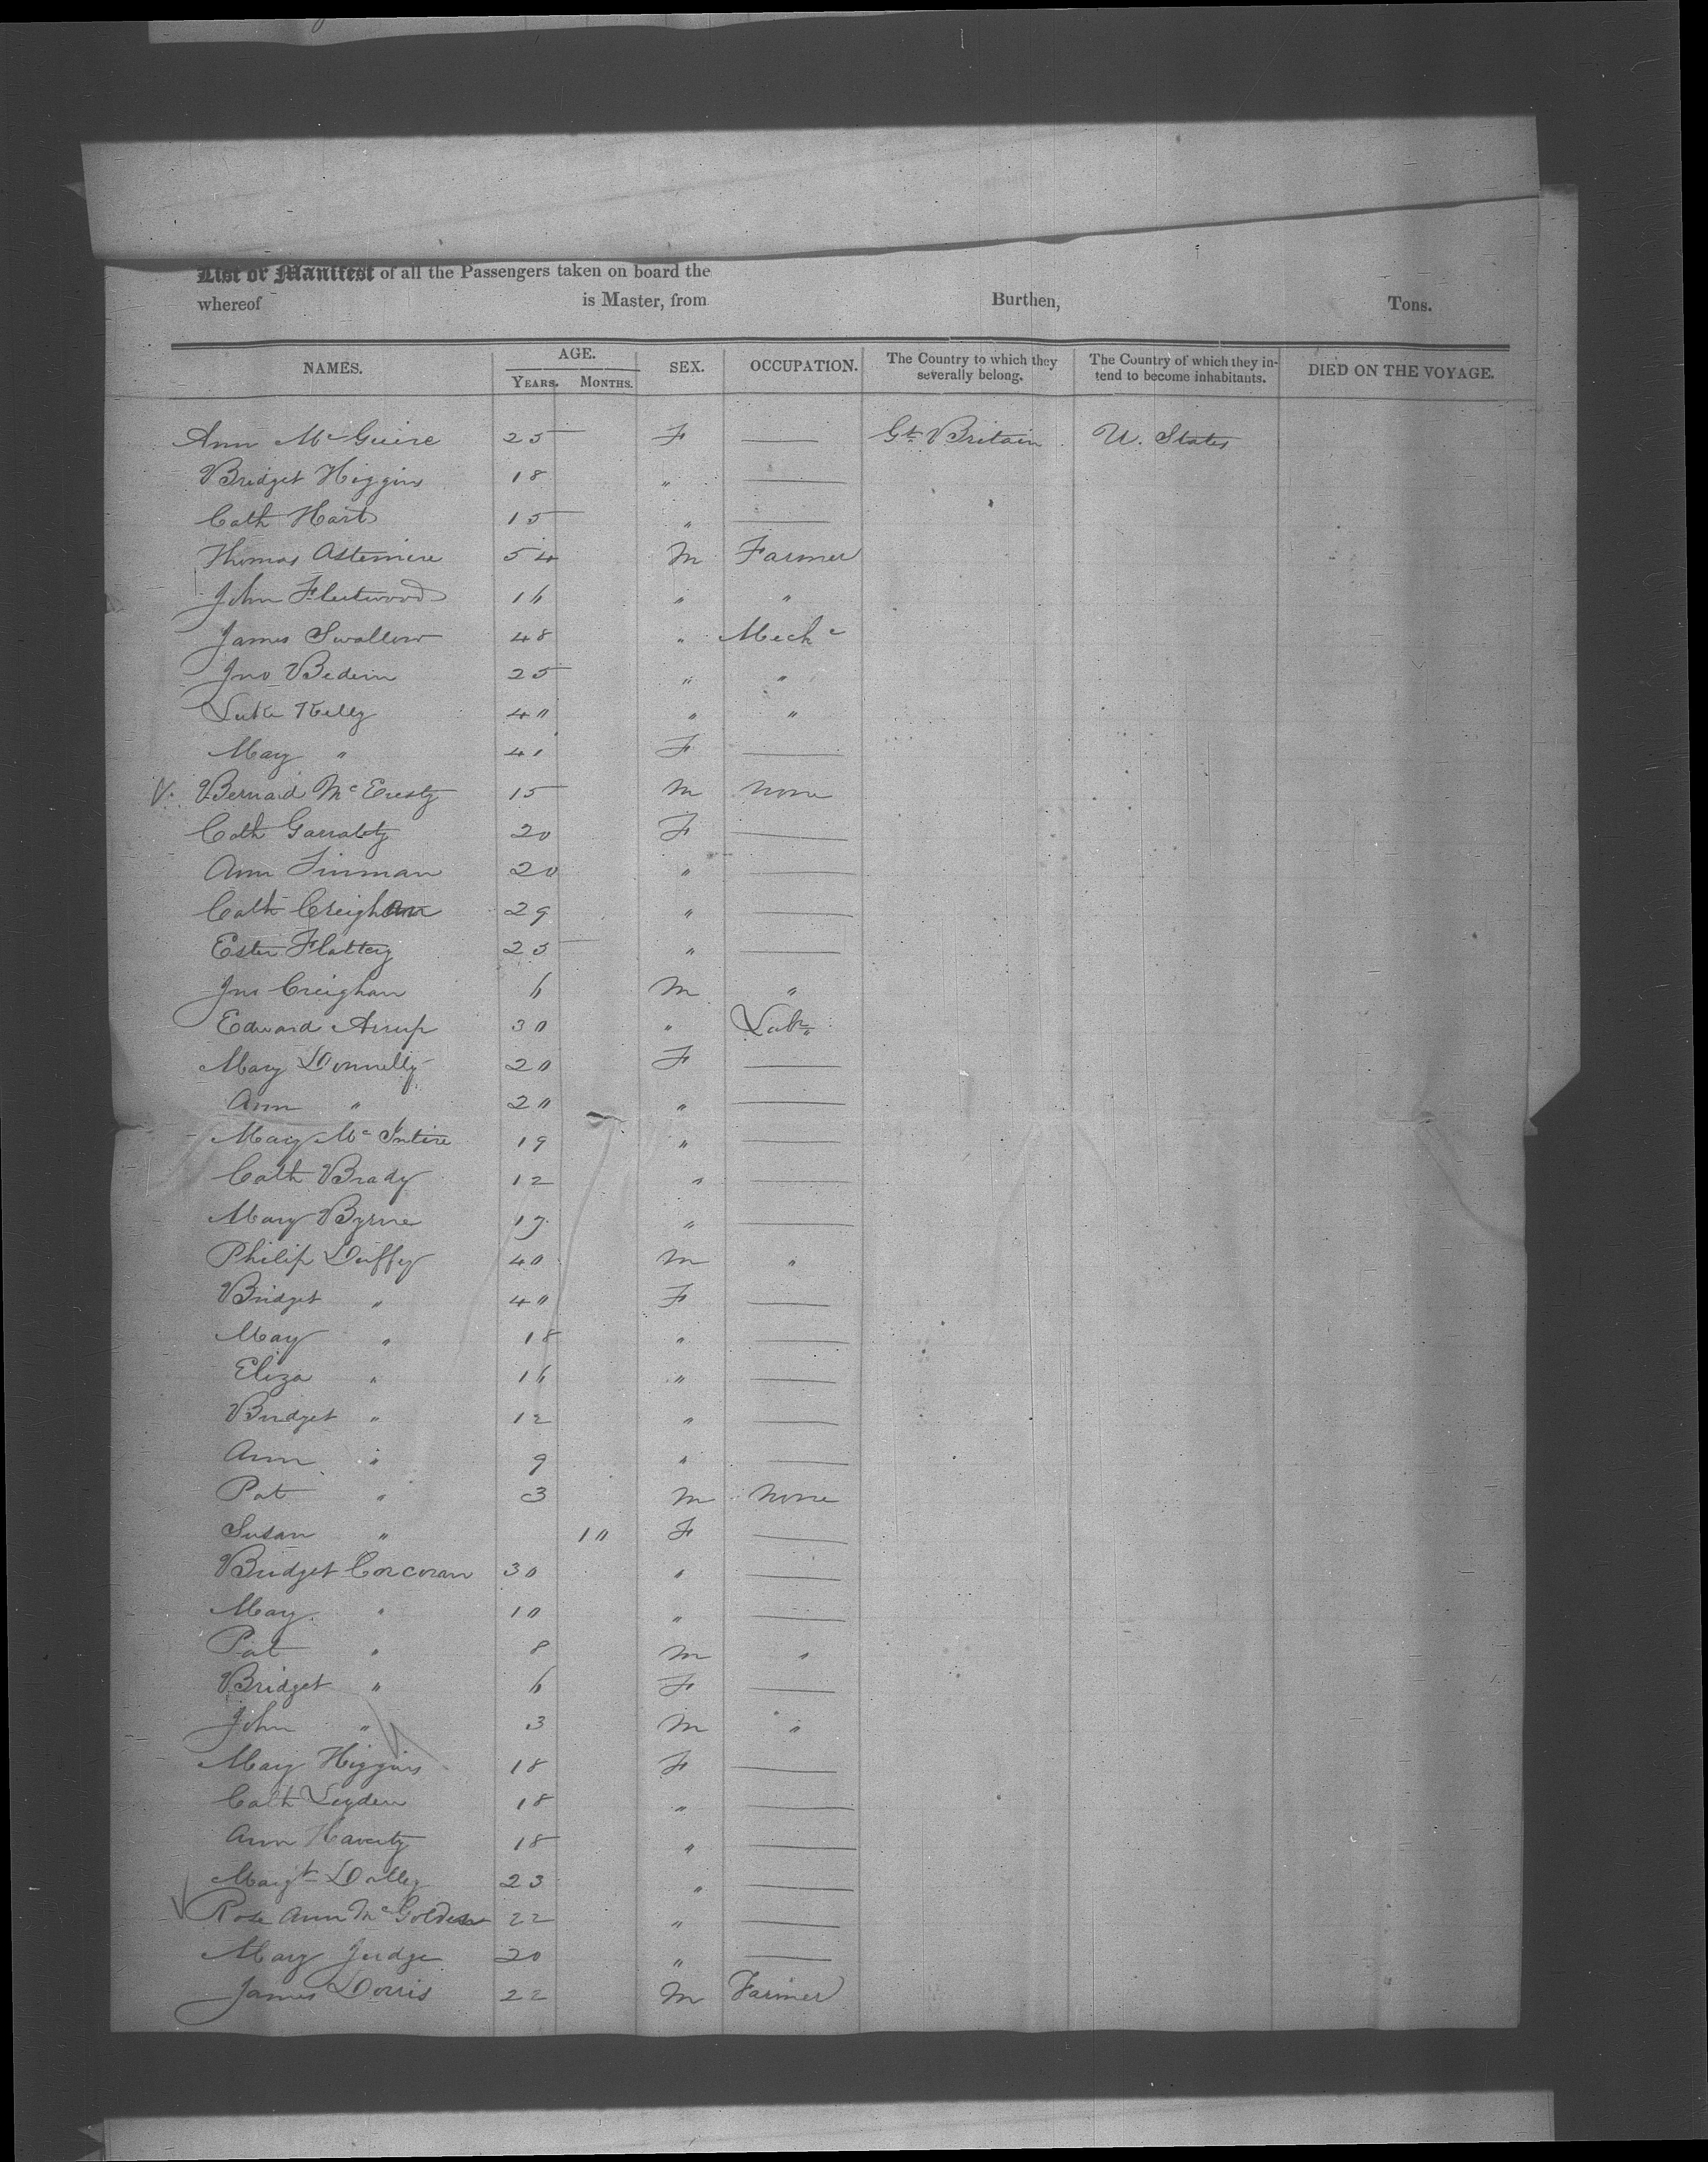 List or Manifest of all the Passengers taken on board the
whereof is Master, from Burthen, Tons.
NAMES. AGE. SEX. OCCUPATION. The Country to which they severally belong. The Country of which they intend to become inhabitants. DIED ON THE VOYAGE.
YEARS. MONTHS.
Ann McGuire 25 F — Gt. Britain U. States
Bridget Higgins 18 " —
Cath Hart 15 " —
Thomas 54 M Farmer
John Fleetwood 16 " "
James Swallow 48 " Mechc
Jno Bedein 25 " "
Luke Kelly 40 " "
Mary " 41 F —
Bernard Mc 15 M None
Cath Garrality 20 F —
Ann 20 " —
Cath Creighan 29 " —
Ester Flattery 25 " —
Jno Creighan 6 M "
Edward 30 " Labr
Mary Donnelly 20 F —
Ann " 20 " —
Mary McIntire 19 " —
Cath Brady 12 " —
Mary Byrne 17 " —
Philip Duffy 40 M "
Bridget " 40 F —
Mary " 18 " —
Eliza " 16 " —
Bridget " 12 " —
Ann " 9 " —
Pat " 3 M None
Susan " 10 F —
Bridget Corcoran 30 " —
Mary " 10 " —
Pat " 8 M "
Bridget " 6 F —
John " 3 M "
Mary Higgins 18 F —
Cath Leyden 18 " —
Ann Haverty 18 " —
Margt Dolley 23 " —
Rose Ann Mc 22 " —
Mary Judge 20 " —
James Dorris 22 M Farmer